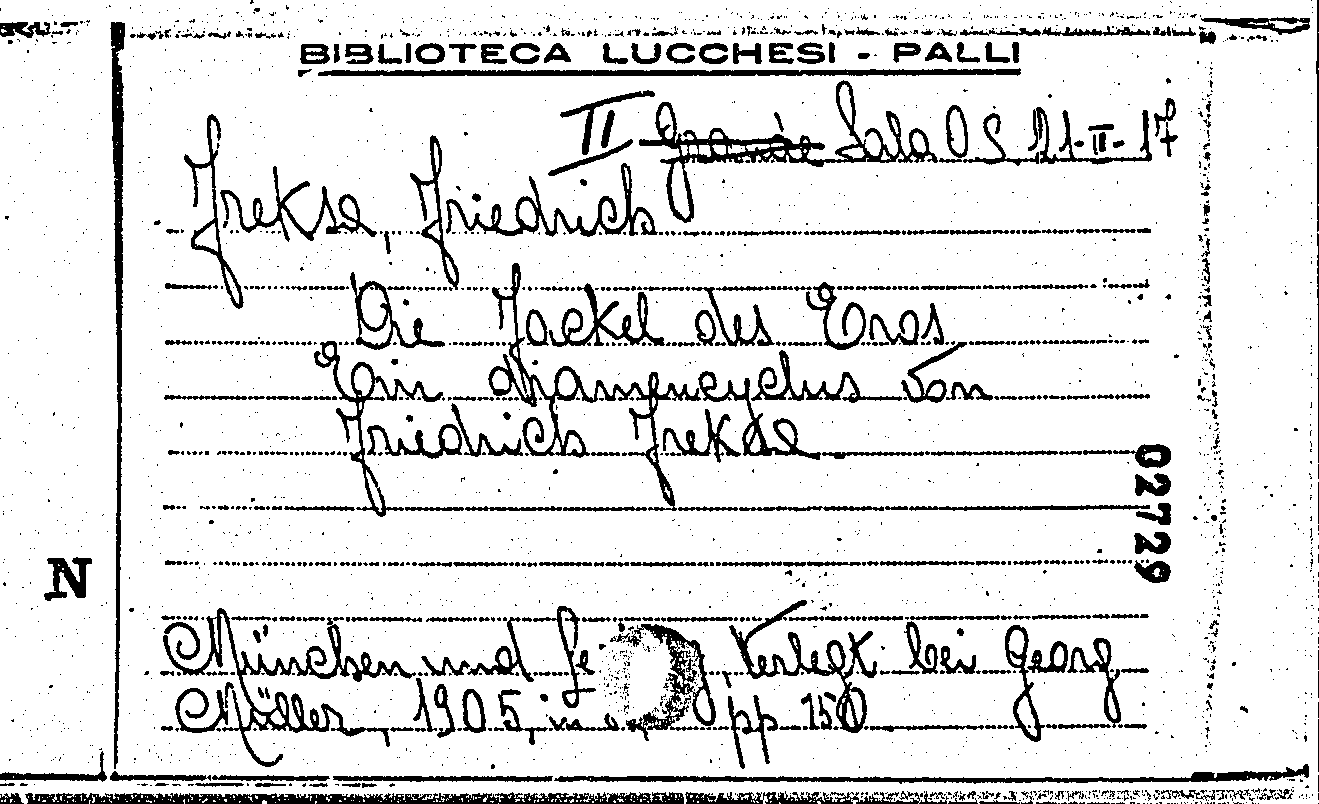 BIBLIOTECA LUCCHESI - PALLI
II Grande Sala O S. 21-II-17
Freksa, Friedrich
Die Fackel des Eros
Ein dramencyclus von
Friedrich Freksa
02729
N
München und verlegt bei Georg
Müller, 1905, in pp 150